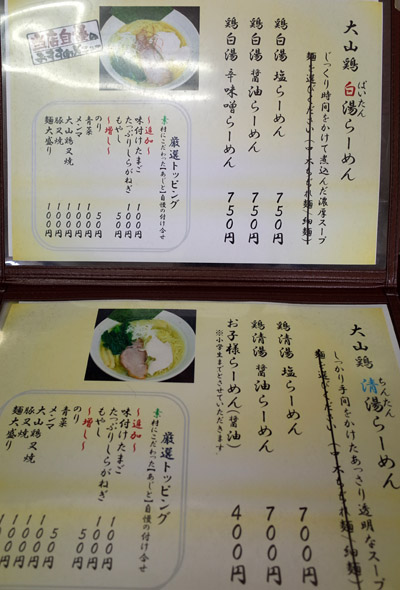 大山鶏 白湯らーめん
ぱいたん
じっくり時間をかけて煮込んだ濃厚スープ
鶏白湯 塩らーめん 750円
鶏白湯 醤油らーめん 750円
鶏白湯 辛味噌らーめん 750円
当店自慢の
おすすめ
厳選トッピング
素材にこだわった【あじと】自慢の付け合せ
～追加～
味付けたまご 100円
たっぷりしらがねぎ 100円
もやし 50円
～増し～
のり 50円
青菜 100円
メンマ 100円
大山鶏叉焼 100円
豚叉焼 100円
麺大盛り 100円
大山鶏 清湯らーめん
ちんたん
しっかり手間をかけたあっさり透明なスープ
鶏清湯 塩らーめん 700円
鶏清湯 醤油らーめん 700円
お子様らーめん(醤油) 400円
※小学生までとさせていただきます
厳選トッピング
素材にこだわった【あじと】自慢の付け合せ
～追加～
味付けたまご 100円
たっぷりしらがねぎ 100円
もやし 50円
～増し～
のり 50円
青菜
メンマ
大山鶏叉焼
豚叉焼
麺大盛り